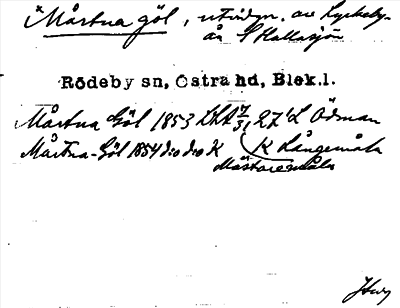 Mårtna göl, utvidgn. av Lyckeby-
ån S Kallasjön
Rödeby sn, Östra hd, Blek.l.
Mårtna Göl 1853 LAA 7/31 27 L Ödman
Mårtna-Göl 1854 d:o d:o K K Långemåla
Mästaremåla